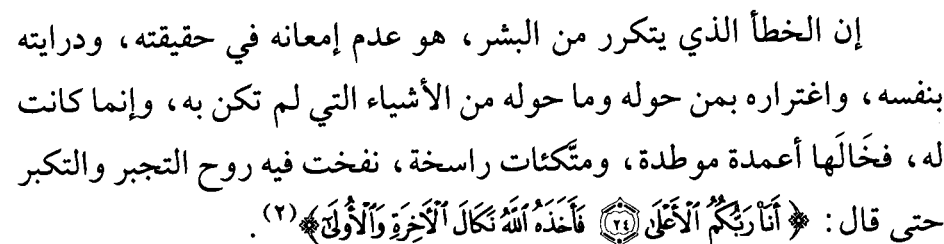 إن الخطأ الذي يتكرر من البشر، هو عدم إمعانه في حقيقته، ودرايته
بنفسه، واغتراره بمن حوله وما حوله من الأشياء التي لم تكن به، وإنما كانت
له، فخَالَها أعمدة موطدة، ومتَّكئات راسخة، نفخت فيه روح التجبر والتكبر
حتى قال: ﴿أَنَا۠ رَبُّكُمُ ٱلْأَعْلَىٰ ۝٢٤ فَأَخَذَهُ ٱللَّهُ نَكَالَ ٱلْأَخِرَةِ وَٱلْأُولَىٰٓ﴾(٢).